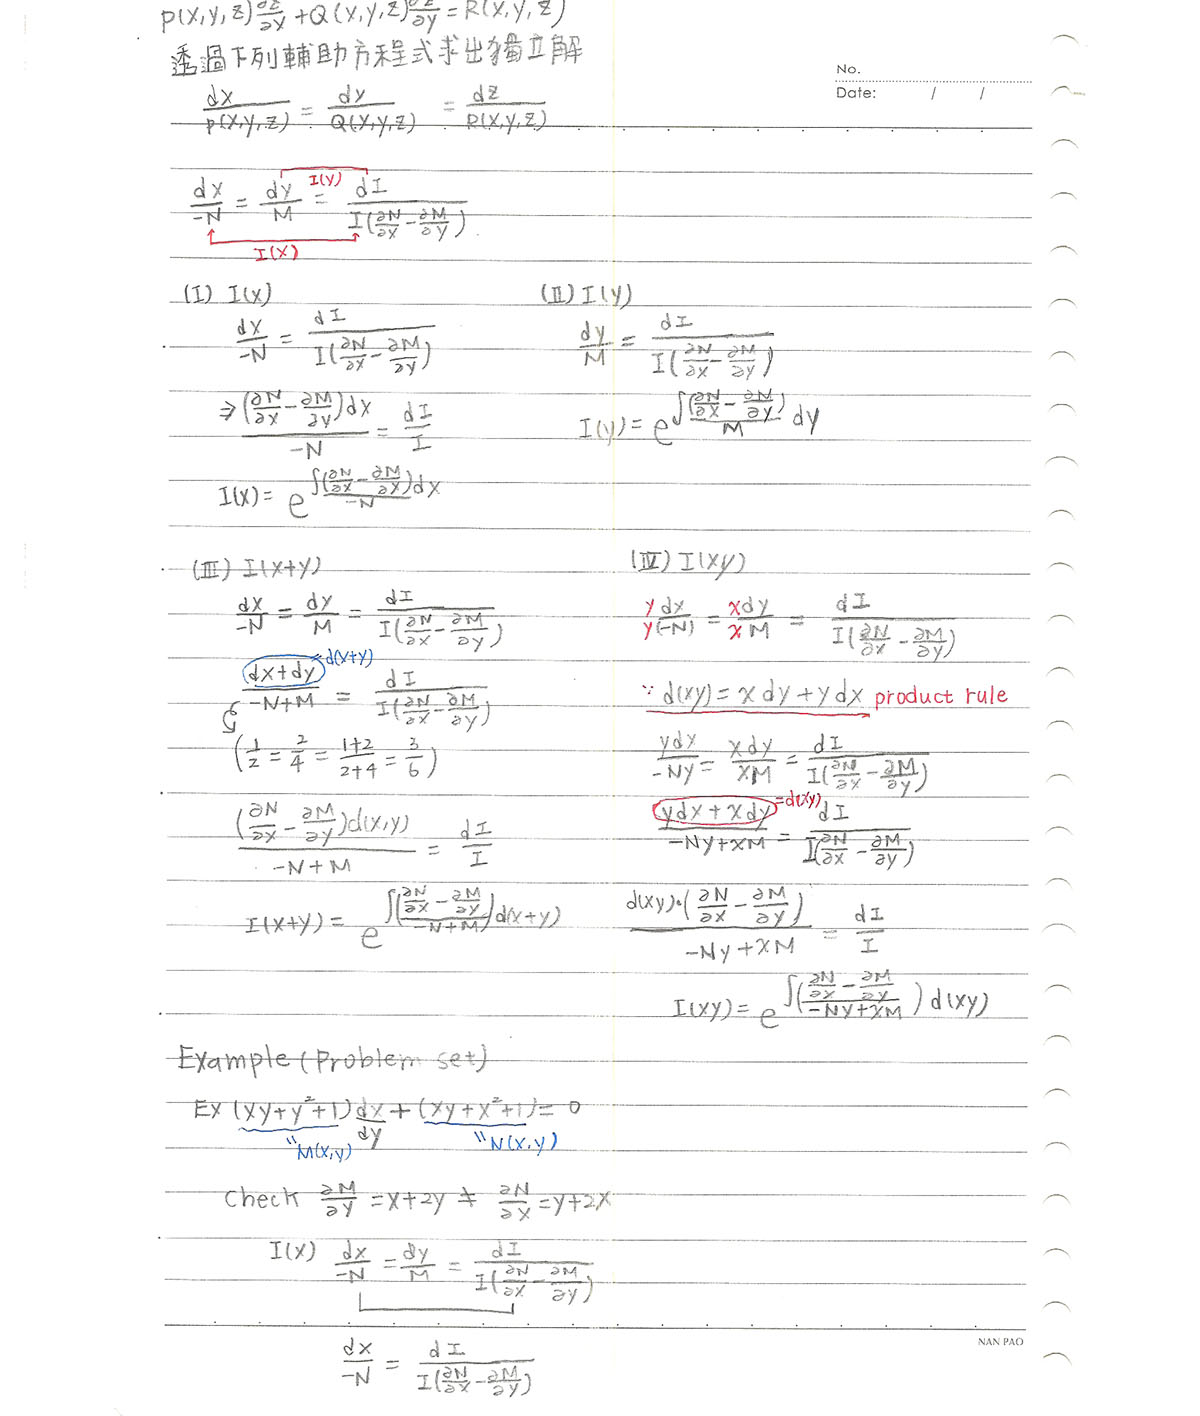 P(x,y,z)∂z/∂x + Q(x,y,z)∂z/∂y = R(x,y,z)
透過下列輔助方程式求出獨立解
No.
Date: / /
dx/P(x,y,z) = dy/Q(x,y,z) = dz/R(x,y,z)
I(y)
dx/-N = dy/M = dI/I(∂N/∂x - ∂M/∂y)
I(x)
(I) I(x)
dx/-N = dI/I(∂N/∂x - ∂M/∂y)
⇒ (∂N/∂x - ∂M/∂y)dx/-N = dI/I
I(x) = e^∫(∂N/∂x - ∂M/∂x)/-N dx
(II) I(y)
dy/M = dI/I(∂N/∂x - ∂M/∂y)
I(y) = e^∫(∂N/∂x - ∂M/∂y)/M dy
(III) I(x+y)
dx/-N = dy/M = dI/I(∂N/∂x - ∂M/∂y)
dx+dy = d(x+y)
dx+dy/-N+M = dI/I(∂N/∂x - ∂M/∂y)
(1/2 = 2/4 = 1+2/2+4 = 3/6)
(∂N/∂x - ∂M/∂y)d(x,y)/-N+M = dI/I
I(x+y) = e^∫(∂N/∂x - ∂M/∂y/-N+M)d(x+y)
(IV) I(xy)
y dx/y(-N) = x dy/x M = dI/I(∂N/∂x - ∂M/∂y)
∵ d(xy) = x dy + y dx product rule
ydx/-Ny = xdy/xM = dI/I(∂N/∂x - ∂M/∂y)
ydx + xdy = d(xy)
ydx + xdy/-Ny+xM = dI/I(∂N/∂x - ∂M/∂y)
d(xy)·(∂N/∂x - ∂M/∂y)/-Ny+xM = dI/I
I(xy) = e^∫(∂N/∂x - ∂M/∂y/-Ny+xM) d(xy)
Example (Problem set)
Ex (xy+y²+1)dx/dy + (xy+x²+1) = 0
"M(x,y) "N(x,y)
Check ∂M/∂y = x+2y ≠ ∂N/∂x = y+2x
I(x) dx/-N = dy/M = dI/I(∂N/∂x - ∂M/∂y)
NAN PAO
dx/-N = dI/I(∂N/∂x - ∂M/∂y)